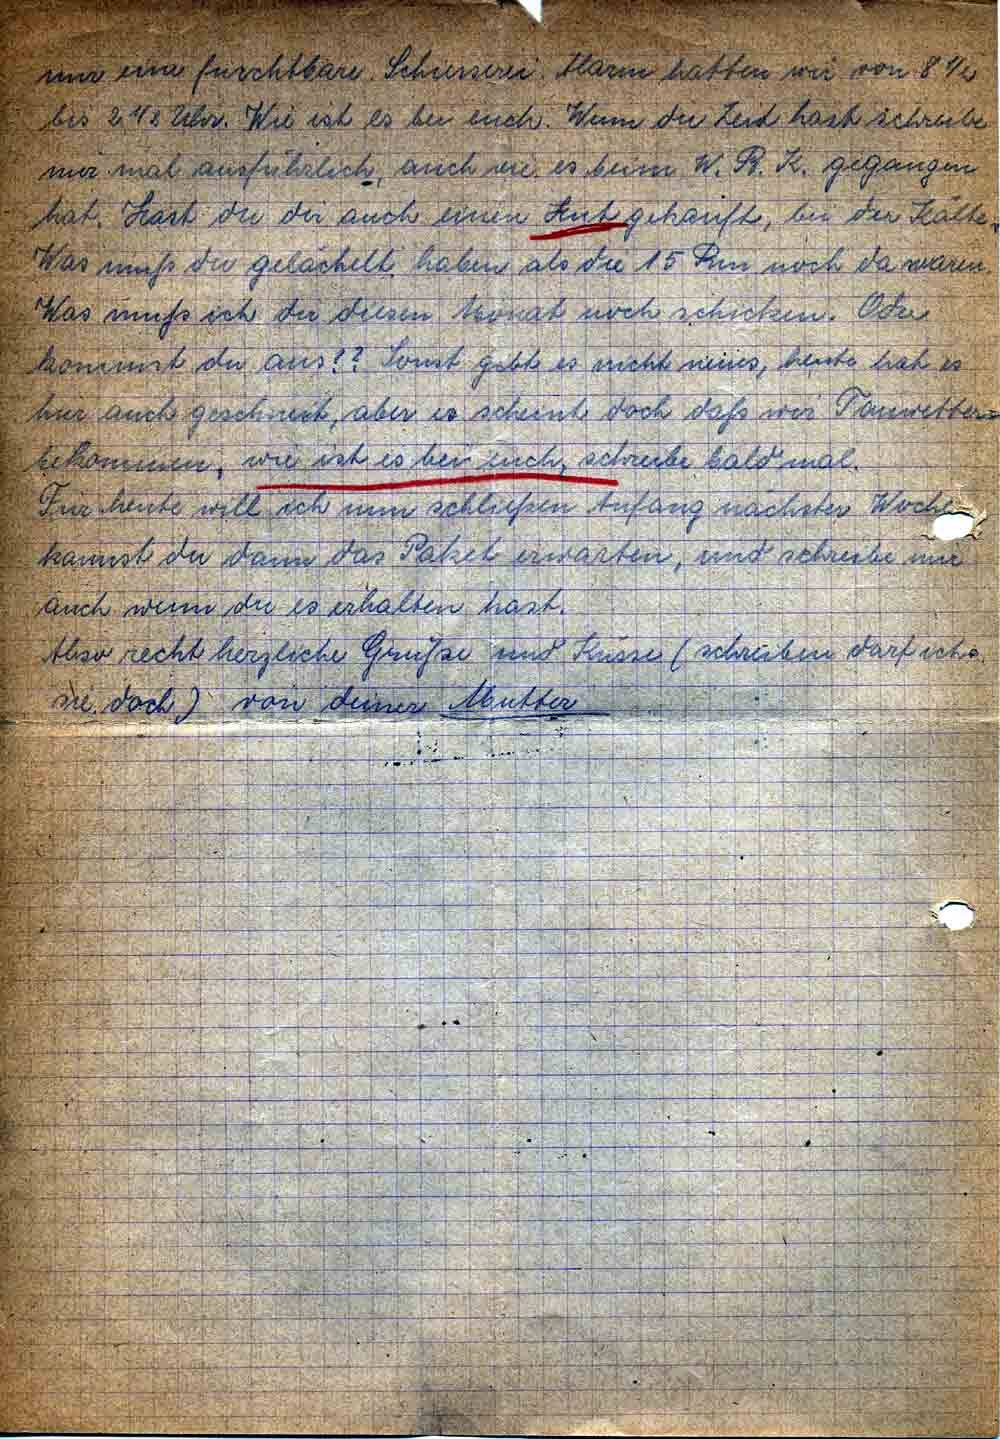 nur eine furchtbare Schiesserei. Alarm hatten wir von 8 1/2
bis 2 1/2 Uhr. Wie ist es bei euch. Wenn du Zeit hast schreibe
mir mal ausführlich, auch wie es beim W. B. K. gegangen
hat. Hast du dir auch einen Hut gekauft, bei der Kälte.
Was mußt du gelächelt haben als die 15 Rm noch da waren.
Was muß ich dir diesen Monat noch schicken. Oder
kommst du aus?? Sonst gibt es nicht neues, heute hat es
hier auch geschneit, aber es scheint doch daß wir Tauwetter
bekommen, wie ist es bei euch, schreibe bald mal.
Für heute will ich nun schließen Anfang nächster Woche
kannst du dann das Paket erwarten, und schreibe mir
auch wenn du es erhalten hast.
Also recht herzliche Grüße und Küsse (schreiben darf ich
sie doch) von deiner Mutter